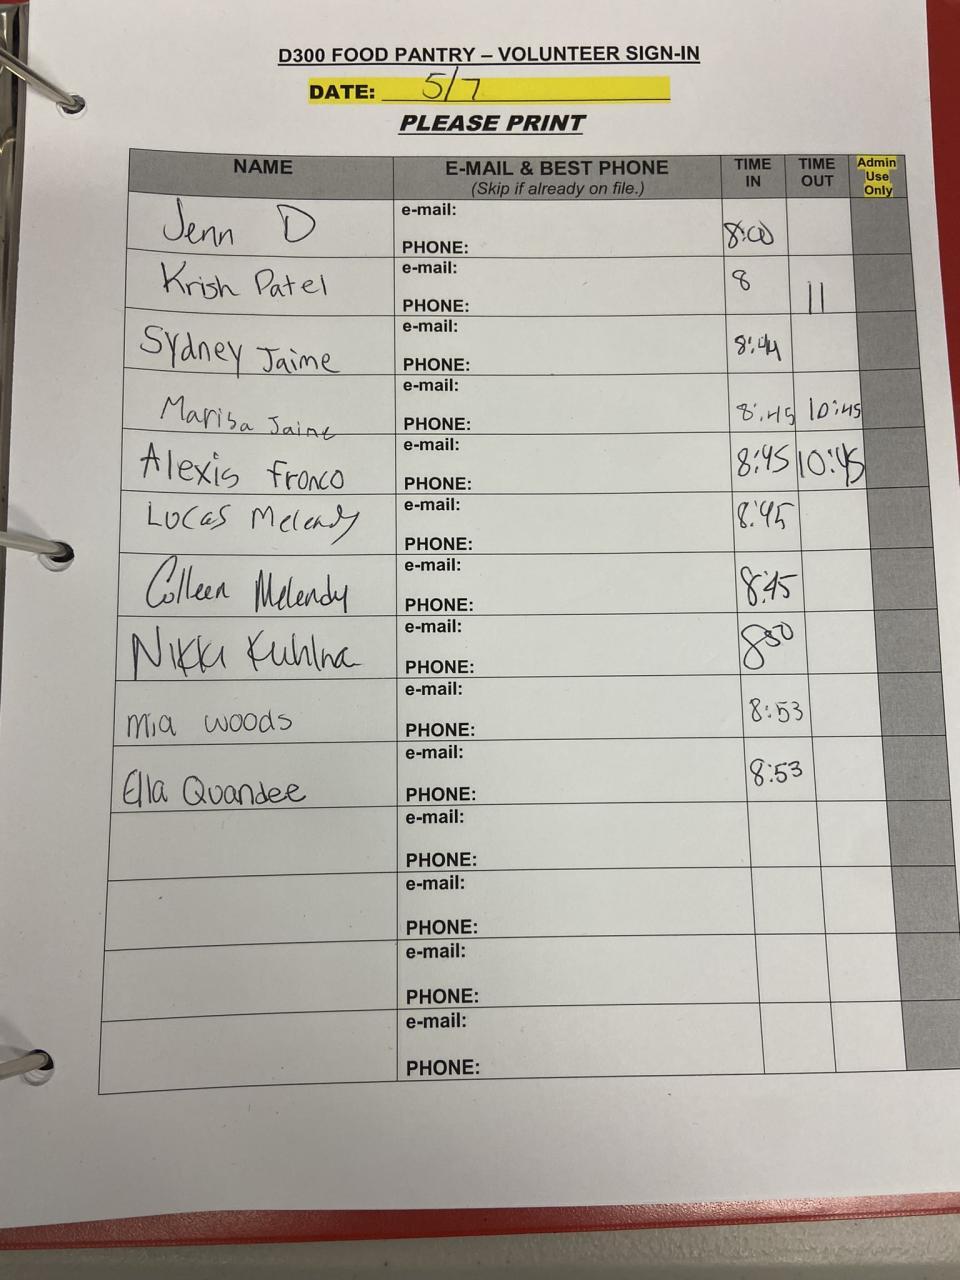 D300 FOOD PANTRY – VOLUNTEER SIGN-IN
DATE: 5/7
PLEASE PRINT
NAME E-MAIL & BEST PHONE TIME TIME Admin
(Skip if already on file.) IN OUT Use
Only
Jenn D e-mail: 8:00
PHONE:
Krish Patel e-mail: 8 11
PHONE:
Sydney Jaime e-mail: 8:44
PHONE:
Marisa Jaime e-mail: 8:45 10:45
PHONE:
Alexis Franco e-mail: 8:45 10:45
PHONE:
Lucas Melendy e-mail: 8:45
PHONE:
Colleen Melendy e-mail: 8:45
PHONE:
Nikki e-mail: 850
PHONE:
mia woods e-mail: 8:53
PHONE:
Ella Quandee e-mail: 8:53
PHONE:
e-mail:
PHONE:
e-mail:
PHONE:
e-mail:
PHONE:
e-mail:
PHONE: